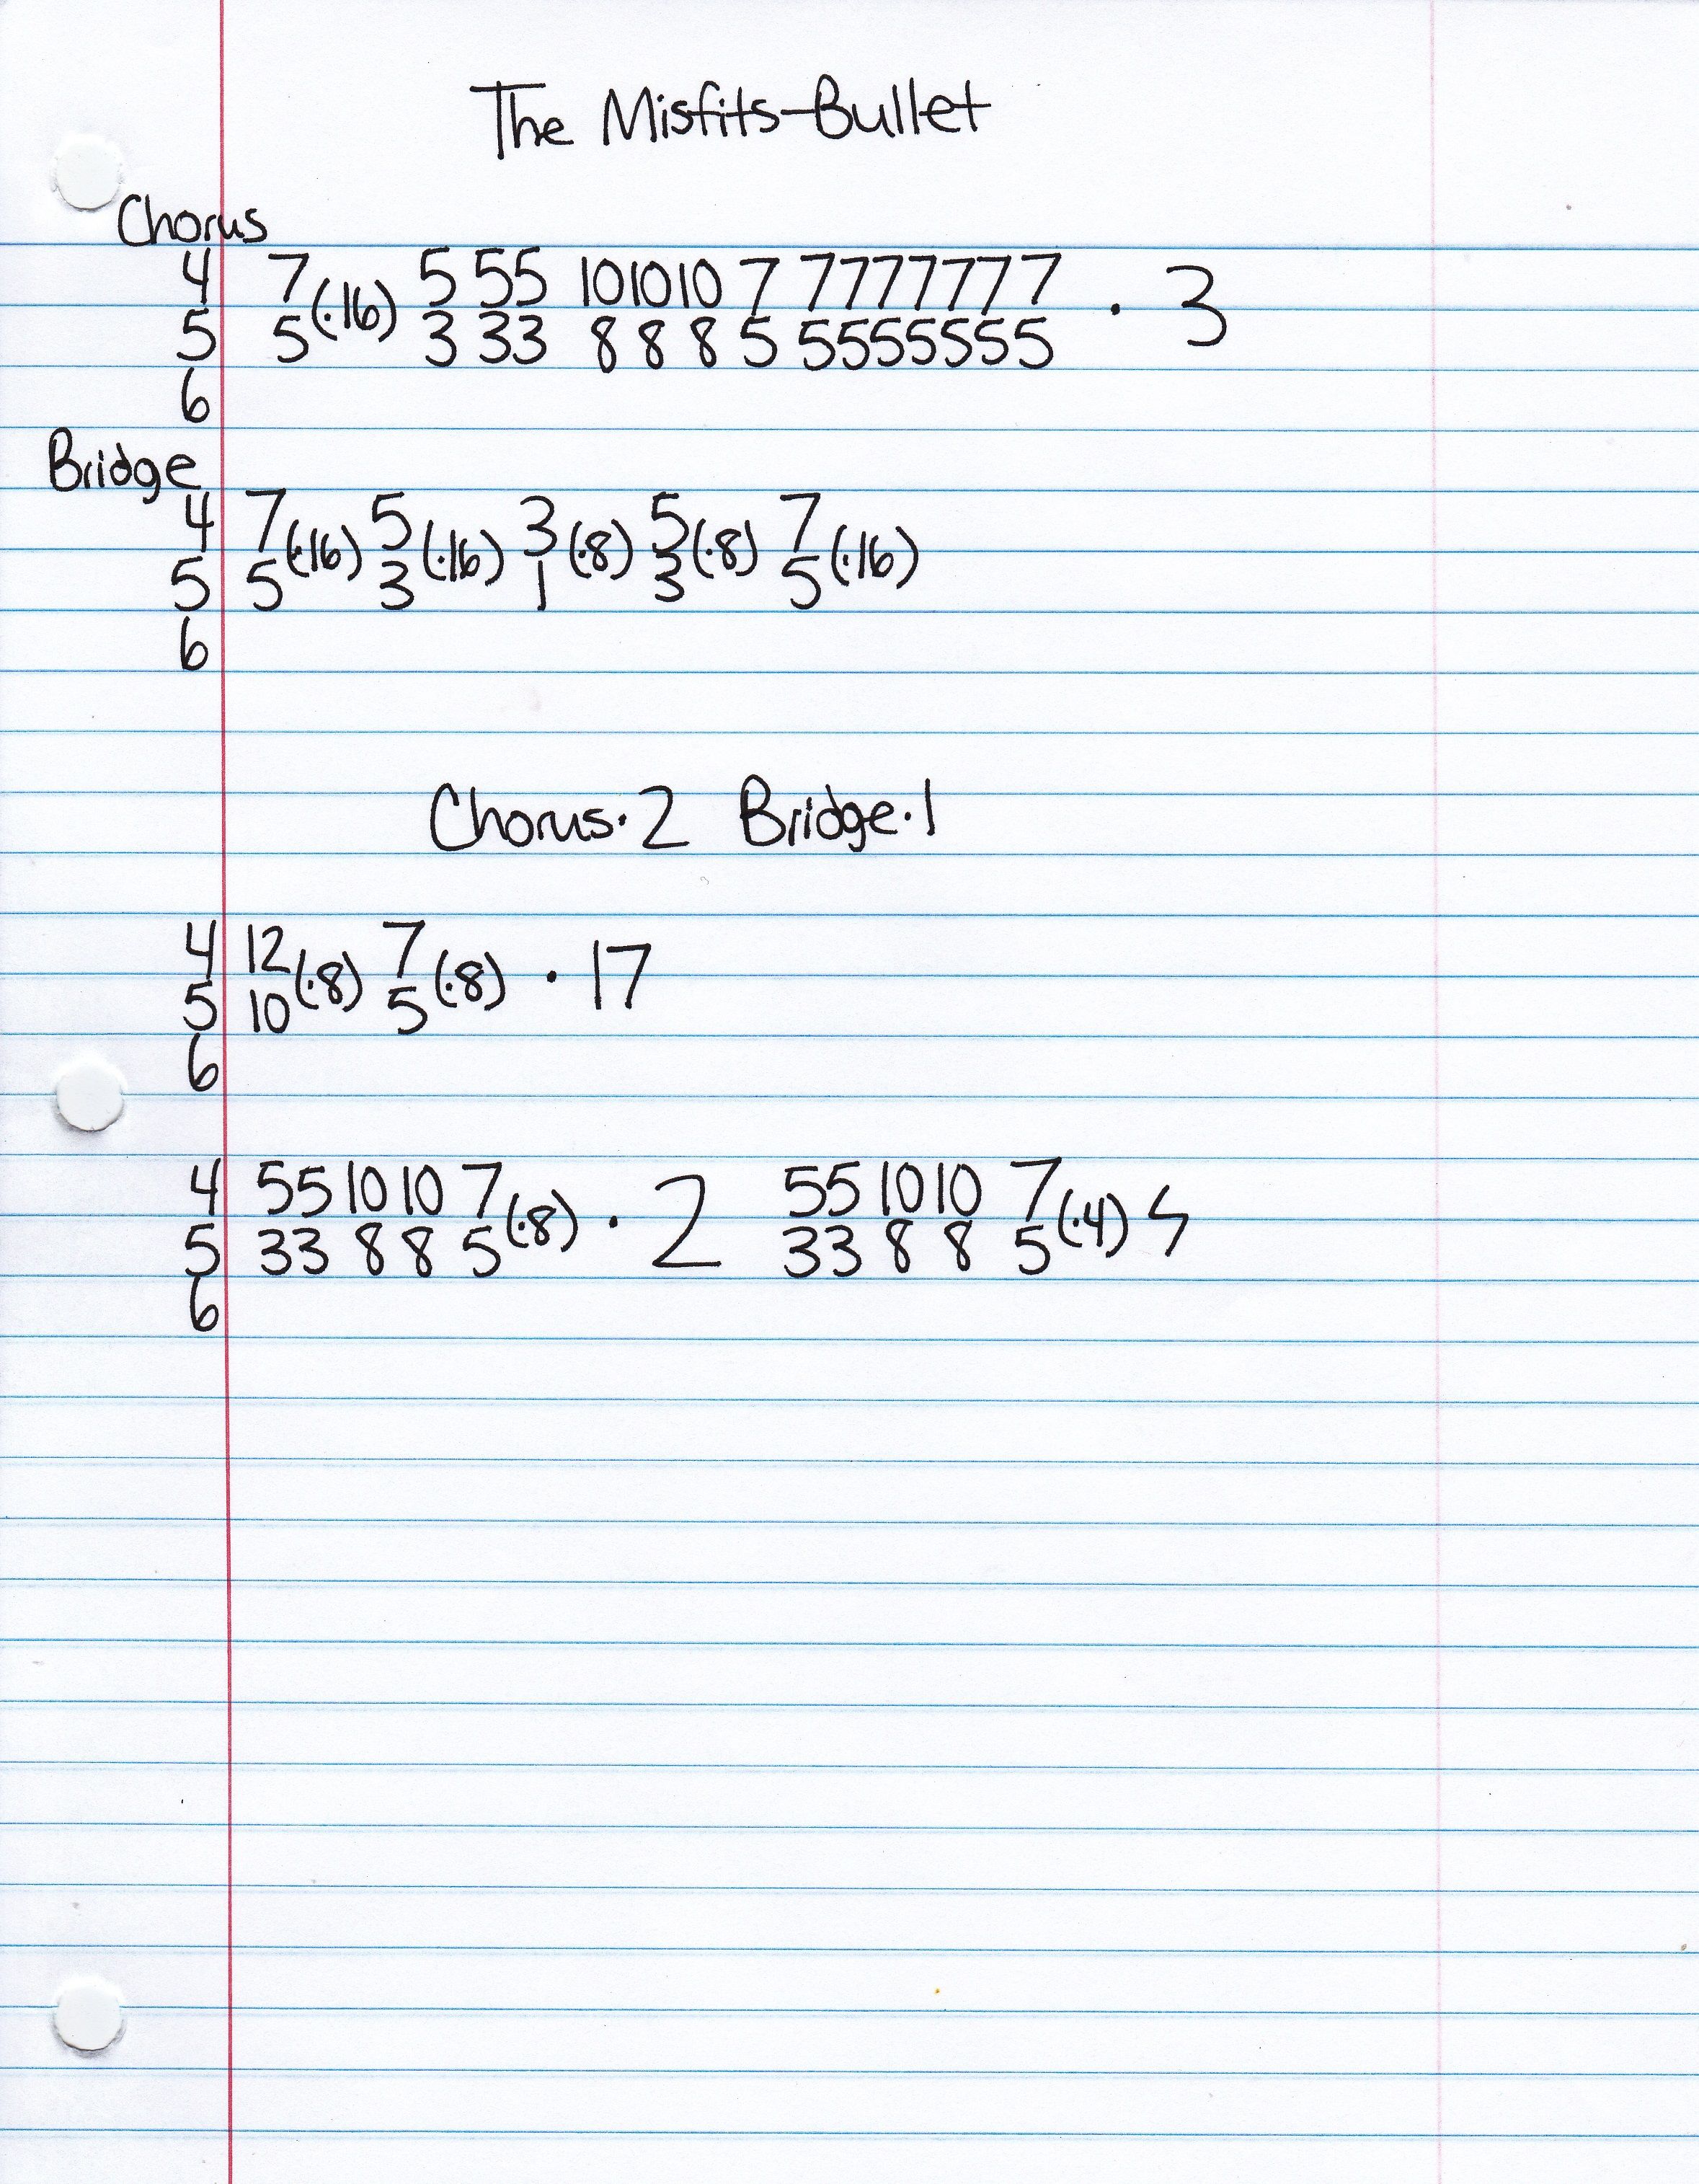 The Misfits-Bullet
Chorus
4 7 5 5 5 10 10 10 7 7 7 7 7 7 7 7
(·16) · 3
5 5 3 3 3 8 8 8 5 5 5 5 5 5 5 5
6
Bridge
4 7 5 3 5 7
(·16) (·16) (·8) (·8) (·16)
5 5 3 1 3 5
6
Chorus·2 Bridge·1
4 12 7
(·8) (·8) · 17
5 10 5
6
4 5 5 10 10 7 5 5 10 10 7
(·8) · 2 (·4)
5 3 3 8 8 5 3 3 8 8 5
6